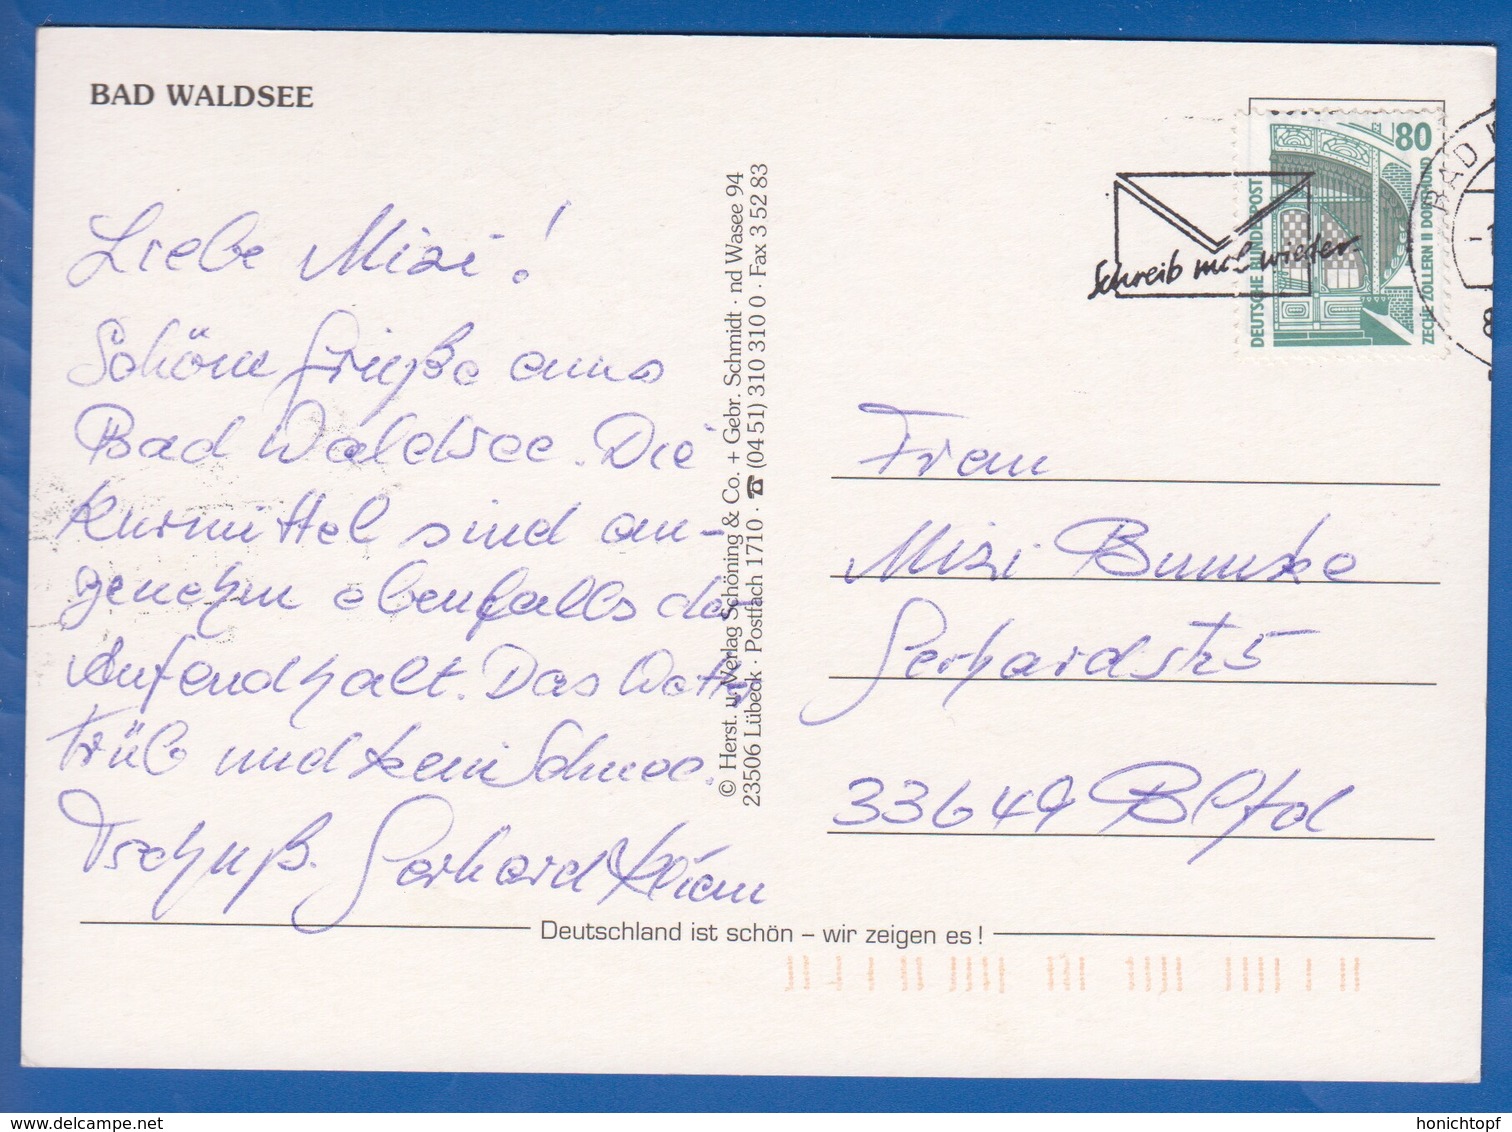 BAD WALDSEE
Liebe Mizi!
Schöne Grüße aus
Bad Waldsee. Die
Kurmittel sind an-
genehm ebenfalls der
Aufendhalt. Das Wetter
trüb und kein Schnee.
Tschuß. Gerhard
© Herst. u. Verlag Schöning & Co. + Gebr. Schmidt · nd Wasee 94
23506 Lübeck · Postfach 1710 · ☎ (04 51) 310 310 0 · Fax 3 52 83
Schreib mal wieder.
80
DEUTSCHE BUNDESPOST
ZECHE ZOLLERN II DORTMUND
BAD
8
Frau
Mizi Bumke
Gerhardstr 5
33649 Blfd
Deutschland ist schön – wir zeigen es!
delcampe.net
honichtopf